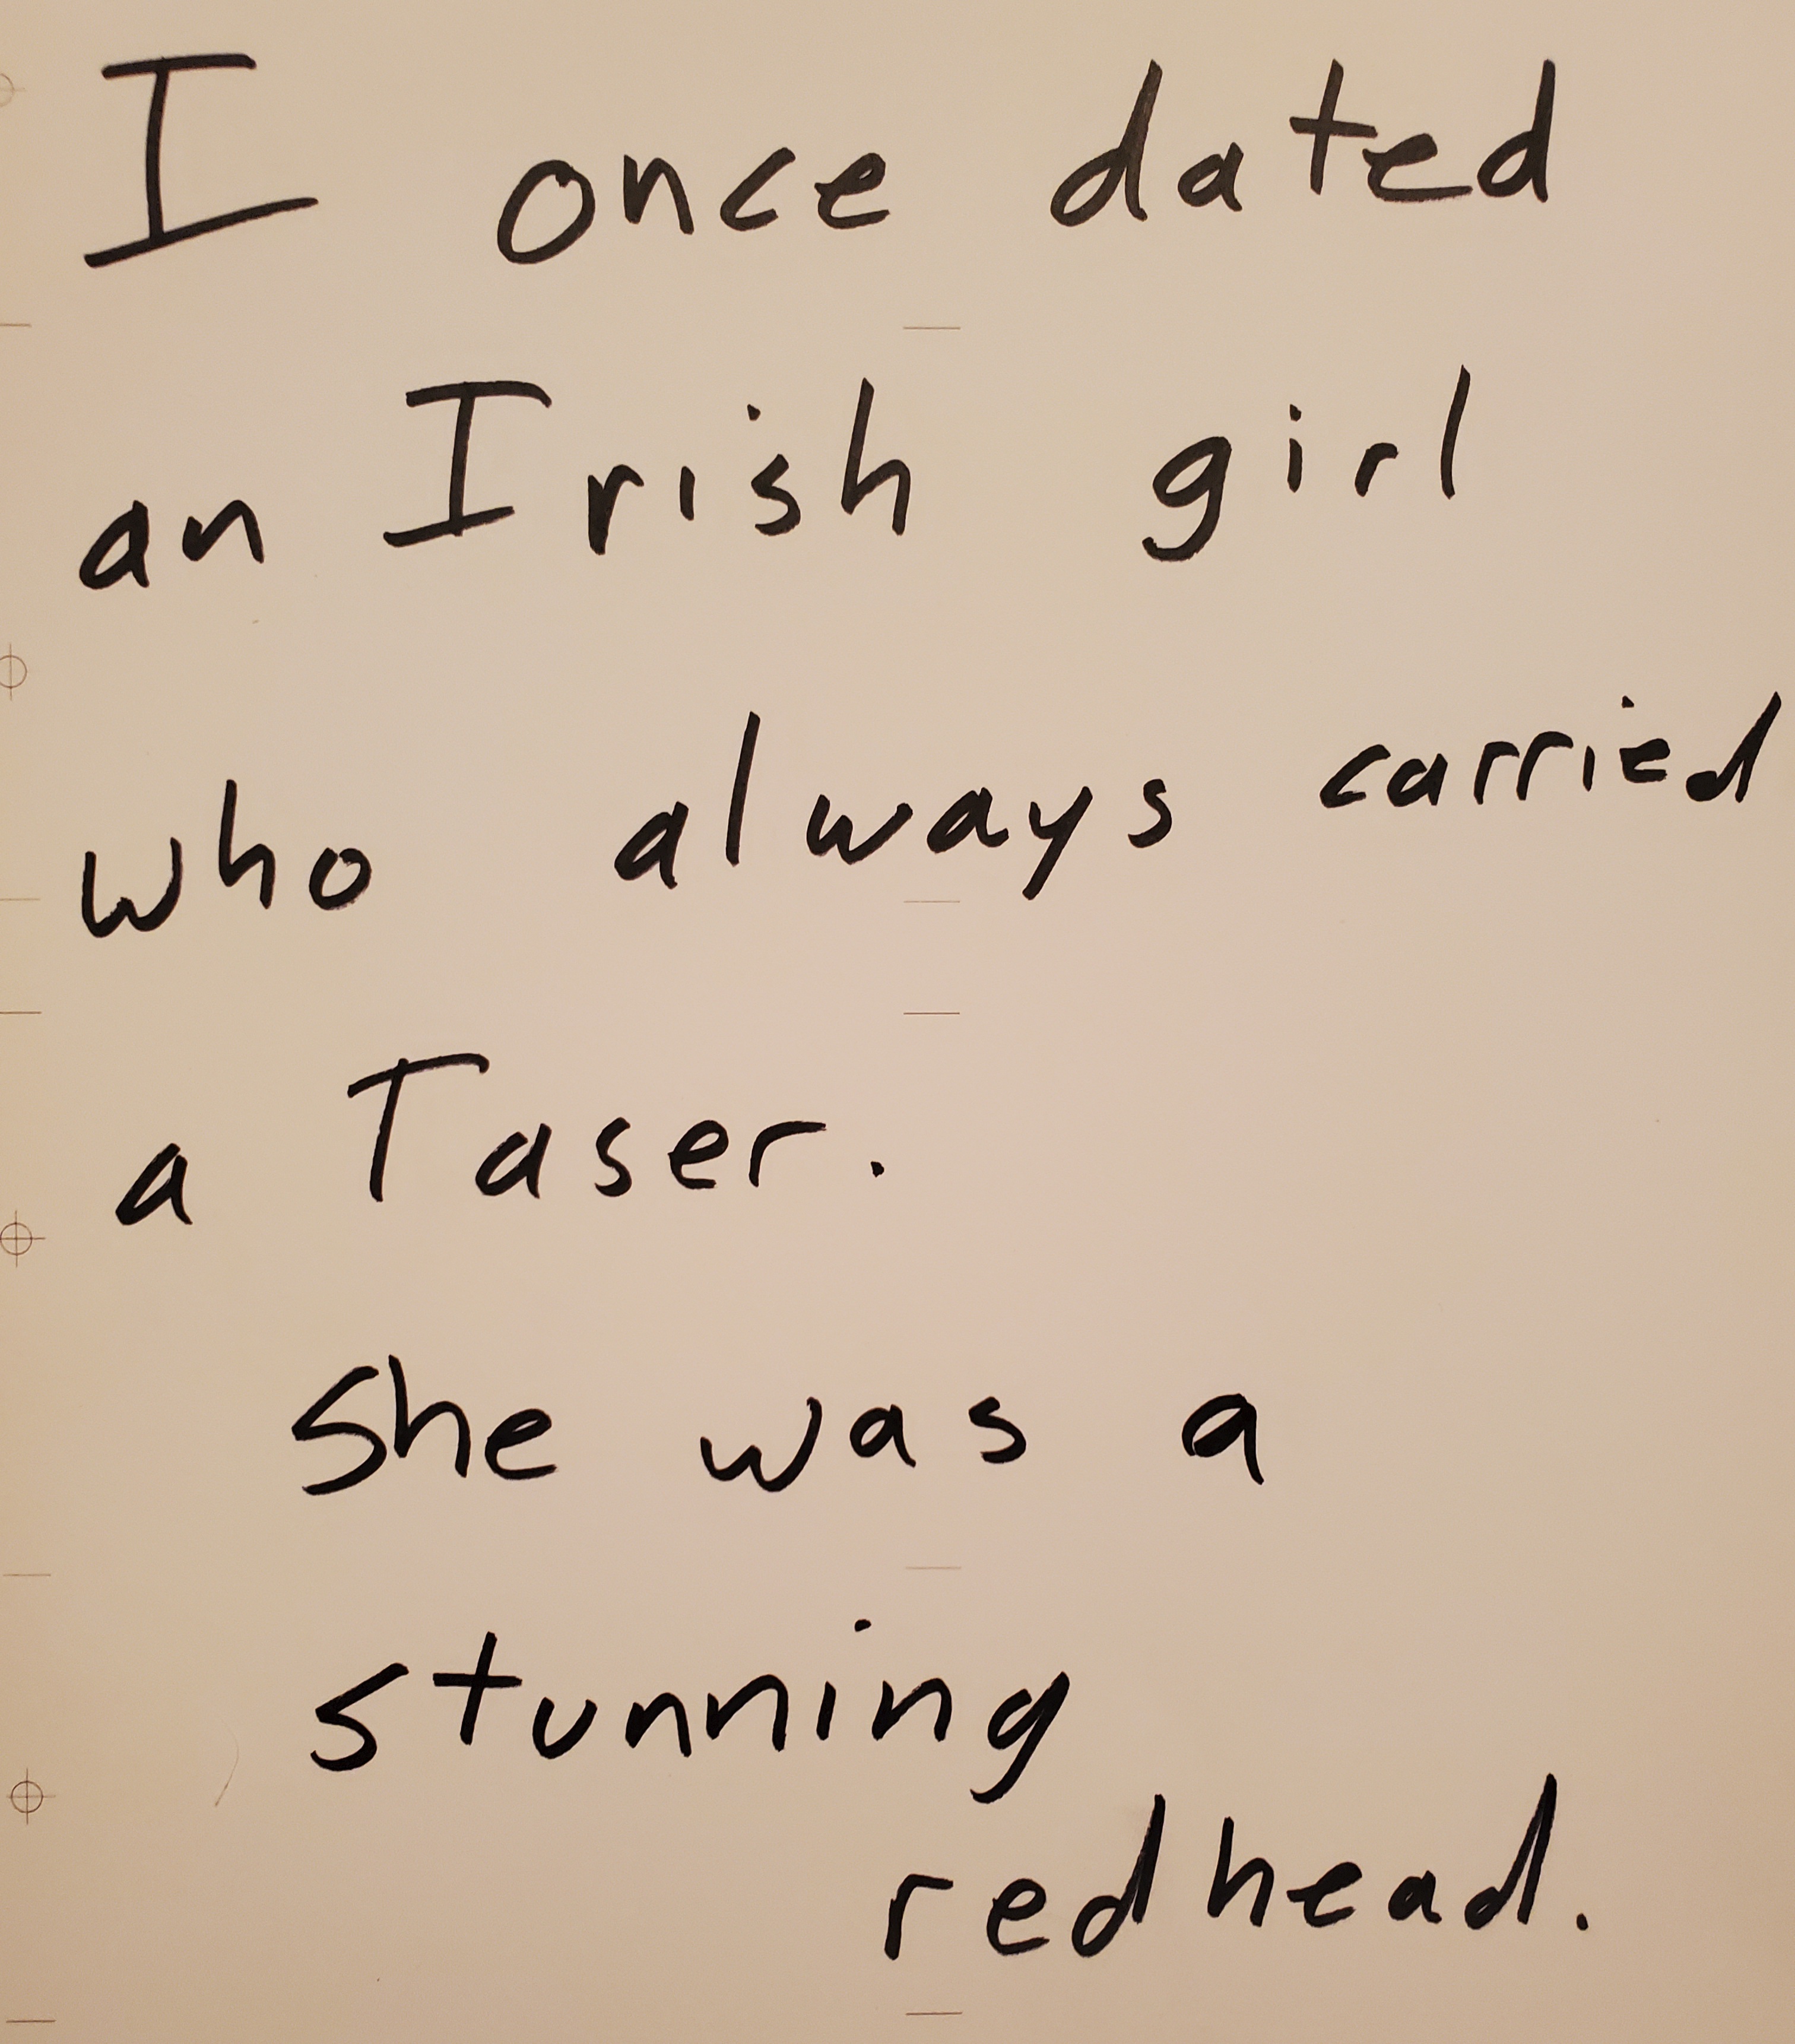 I once dated
an Irish girl
who always carried
a Taser.
She was a
stunning
redhead.